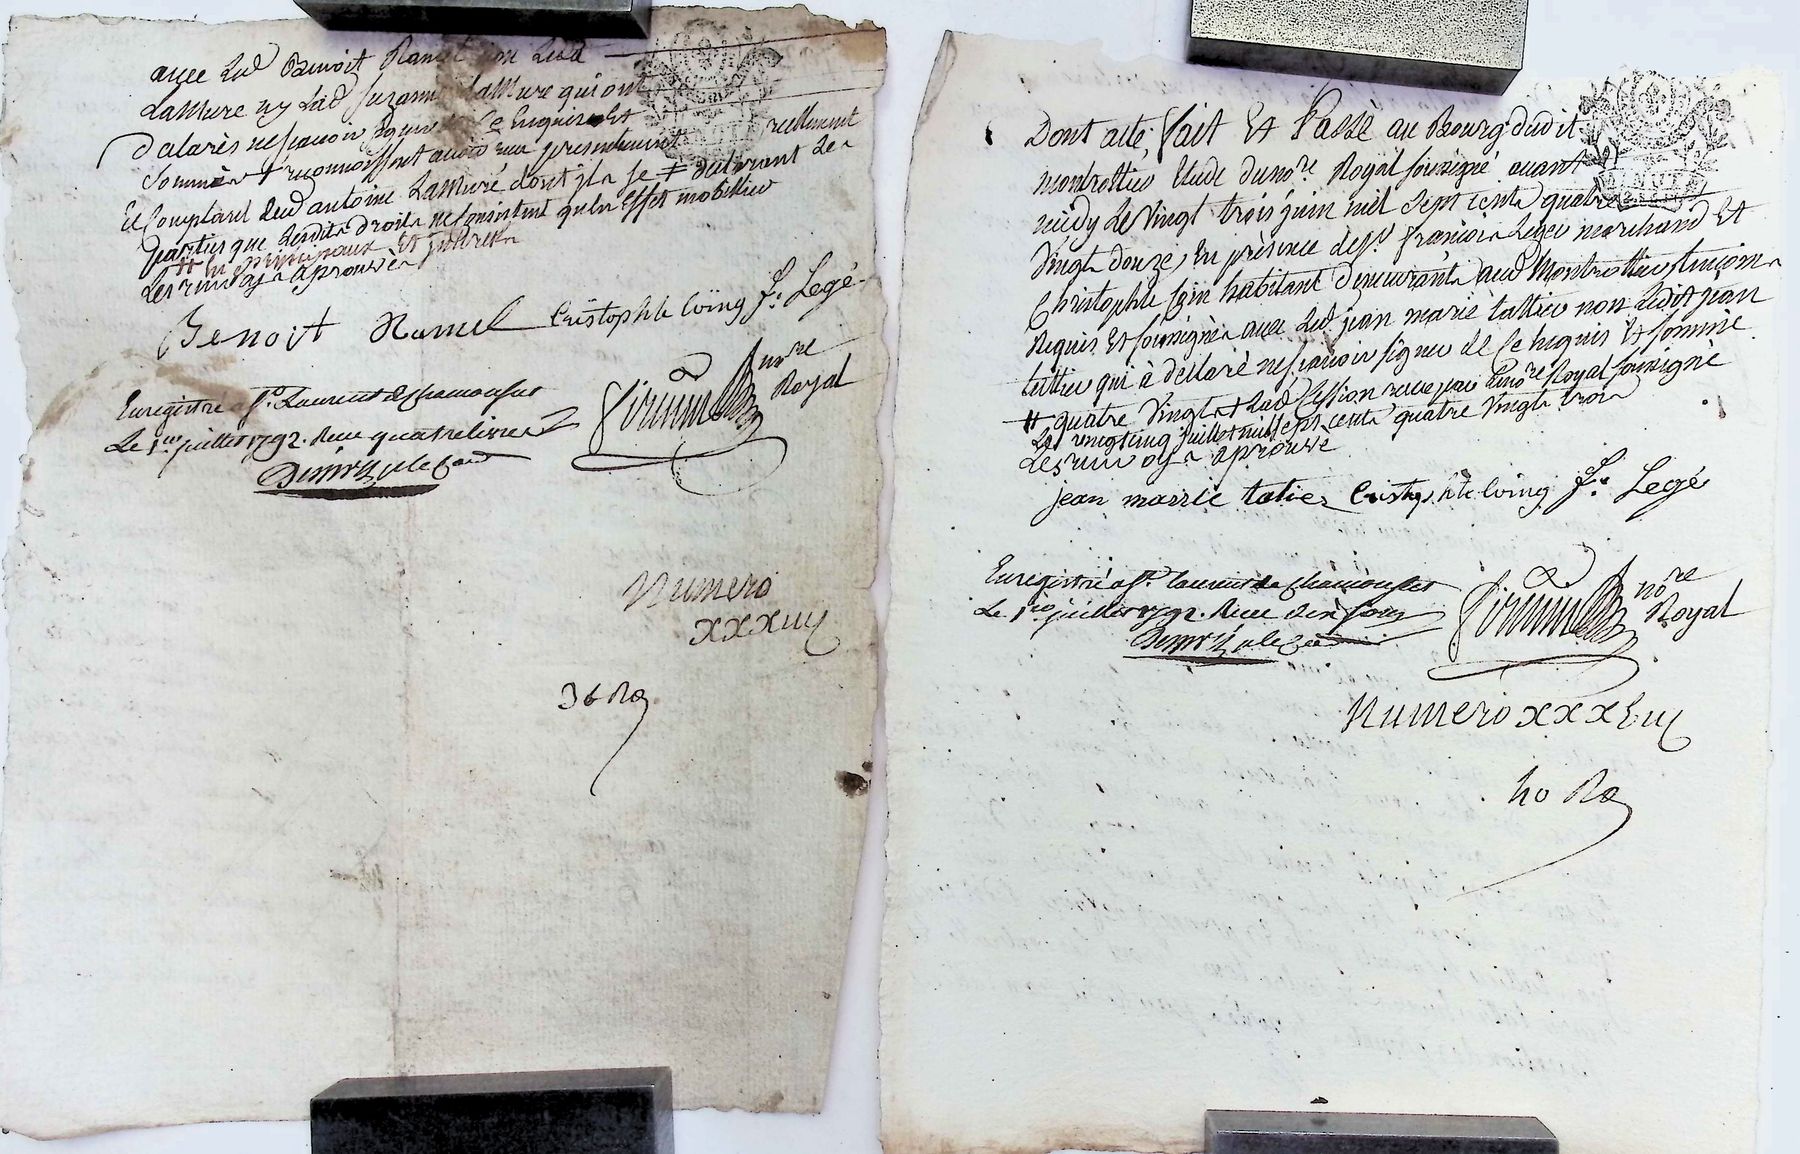 avec Led Benoit Ramel non Led
LaMure ny Lad Suzanne LaMure qui ont
dalarés ne scavoir signer de ce enquis Et
Sommés + reconnoissent avoir reçu presentement reellement
Et Comptant dud antoine LaMure dont ils se + declarant Les
parties que Lesdits droits ne consistent qu'en Effet mobillier
# en principaux Et jnterets
Les renvoys aprouvés
Benoit Ramel Cristophle Coing f. Legé
nore
Royal
Enregistré a St. Laurent de Chamousset
Le 1er juillet 1792. Reçu quatre livres
Numero
XXXIIIj
36 Ro
Dont acte. fait Et Passé au Bourg dudit
Montrottier Etude du nore. Royal soussigné avant
midy Le Vingt trois juin mil Sept cents quatre
Vingts douze, En présence de sr. françois Leger marchand Et
Christophle Coin habitant demeurants aud Montrottier temoins
Requis Et soussignés avec Led jean marie tattier non Ledit jean
tattier qui à declaré ne scavoir signer de Ce enquis Et sommé
# quatre Vingts + Lad Cession reçue par Le nore Royal soussigné
Le vingt cinq juillet mil sept cents quatre Vingts trois
Les renvoys aprouvé
jean marrie tatier Cristophle Coing f. Legé
Enregistré a St. Laurent de Chamousset
Le 1er juillet 1792. Reçu dix sous
nore
Royal
Numero XXXVIIj
40 Ro